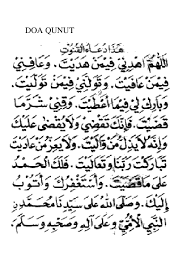 DOA QUNUT
هٰذَا دُعَاءُ الْقُنُوْتِ
اَللّٰهُمَّ اهْدِنِيْ فِيْمَنْ هَدَيْتَ. وَعَافِنِيْ
فِيْمَنْ عَافَيْتَ. وَتَوَلَّنِيْ فِيْمَنْ تَوَلَّيْتَ.
وَبَارِكْ لِيْ فِيْمَا أَعْطَيْتَ. وَقِنِيْ شَرَّمَا
قَضَيْتَ. فَإِنَّكَ تَقْضِيْ وَلَا يُقْضَى عَلَيْكَ
وَإِنَّهُ لَا يَذِلُّ مَنْ وَالَيْتَ. وَلَا يَعِزُّ مَنْ عَادَيْتَ
تَبَارَكْتَ رَبَّنَا وَتَعَالَيْتَ. فَلَكَ الْحَمْدُ
عَلَى مَا قَضَيْتَ. وَأَسْتَغْفِرُكَ وَأَتُوْبُ
إِلَيْكَ. وَصَلَّى اللهُ عَلَى سَيِّدِنَا مُحَمَّدٍ
النَّبِيِّ الْأُمِّيِّ وَعَلَى آلِهِ وَصَحْبِهِ وَسَلَّمَ.